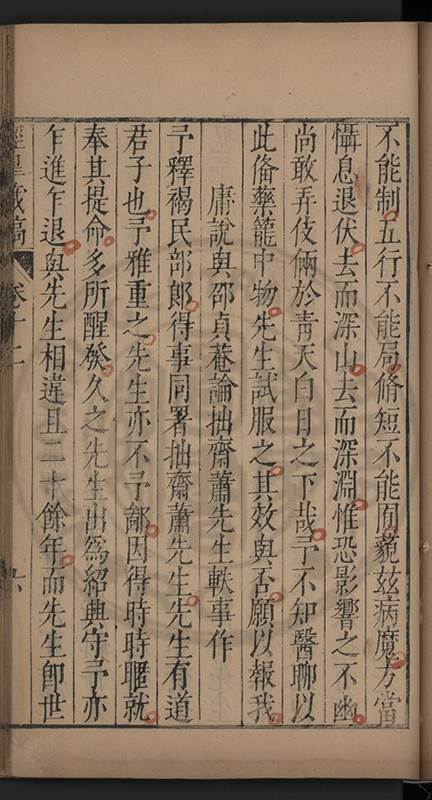 不能制五行不能局脩短不能囿藐玆病魔方當
懾息退伏去而深山去而深淵惟恐影響之不幽
尚敢弄伎倆於靑天白日之下哉予不知醫聊以
此俻藥籠中物先生試服之其效與否願以報我
庸說與邵貞菴論拙齋蕭先生軼事作
予釋褐民部郎得事同署拙齋蕭先生先生有道
君子也予雅重之先生亦不予鄙因得時時暱就
奉其提命多所醒發久之先生出爲紹興守予亦
乍進乍退與先生相違且二十餘年而先生卽世
涇皋藏稿
卷十二
九